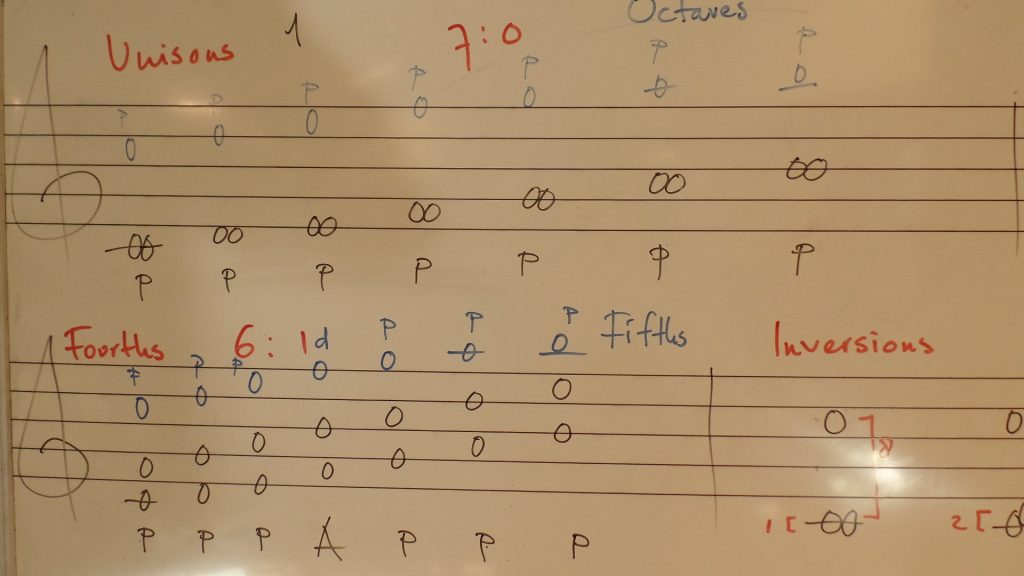 Octaves
Unisons 1 7:0
P P P P P P P
P P P P P P P
Fourths 6:1 d P P P Fifths Inversions
P P P
8
1 [ 2 [
P P P A P P P